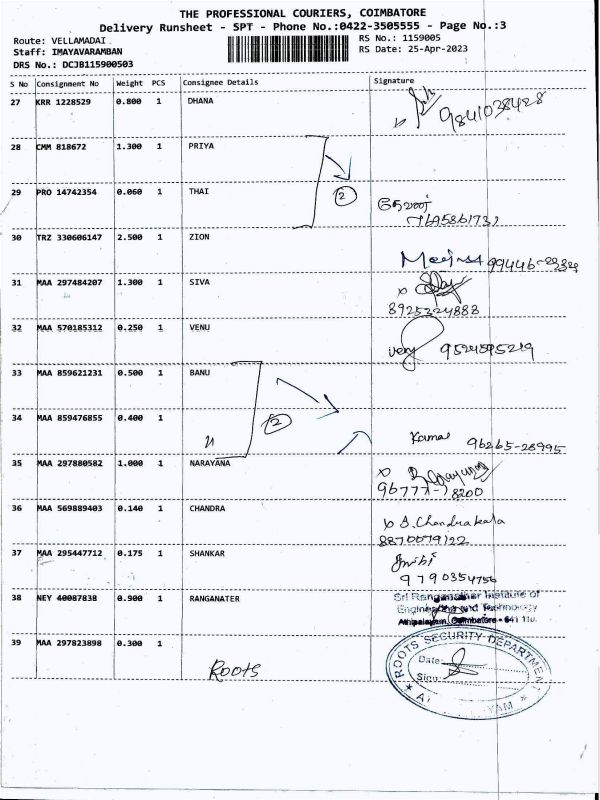 THE PROFESSIONAL COURIERS, COIMBATORE
Delivery Runsheet - SPT - Phone No.:0422-3505555 - Page No.:3
Route: VELLAMADAI
RS No.: 1159005
Staff: IMAYAVARAMBAN
RS Date: 25-Apr-2023
DRS No.: DCJB115900503
S No Consignment No Weight PCS Consignee Details Signature
27 KRR 1228529 0.800 1 DHANA
9841038428
28 CMM 818672 1.300 1 PRIYA
2
29 PRO 14742354 0.060 1 THAI
30 TRZ 330606147 2.500 1 ZION
99446-
31 MAA 297484207 1.300 1 SIVA
8925324888
32 MAA 570185312 0.250 1 VENU
9524595219
33 MAA 859621231 0.500 1 BANU
2
34 MAA 859476855 0.400 1
Kamal 96265-28995
35 MAA 297880582 1.000 1 NARAYANA
96777-78200
36 MAA 569889403 0.140 1 CHANDRA
B. Chandrakala
8870079122
37 MAA 295447712 0.175 1 SHANKAR
9790354756
38 NEY 40087838 0.900 1 RANGANATER
Sri Ranganathar Institute of
Engineering and Technology
Athipalayam, Coimbatore - 641 110.
39 MAA 297823898 0.300 1
ROOTS
ROOTS SECURITY DEPARTMENT
Date:
Sign: